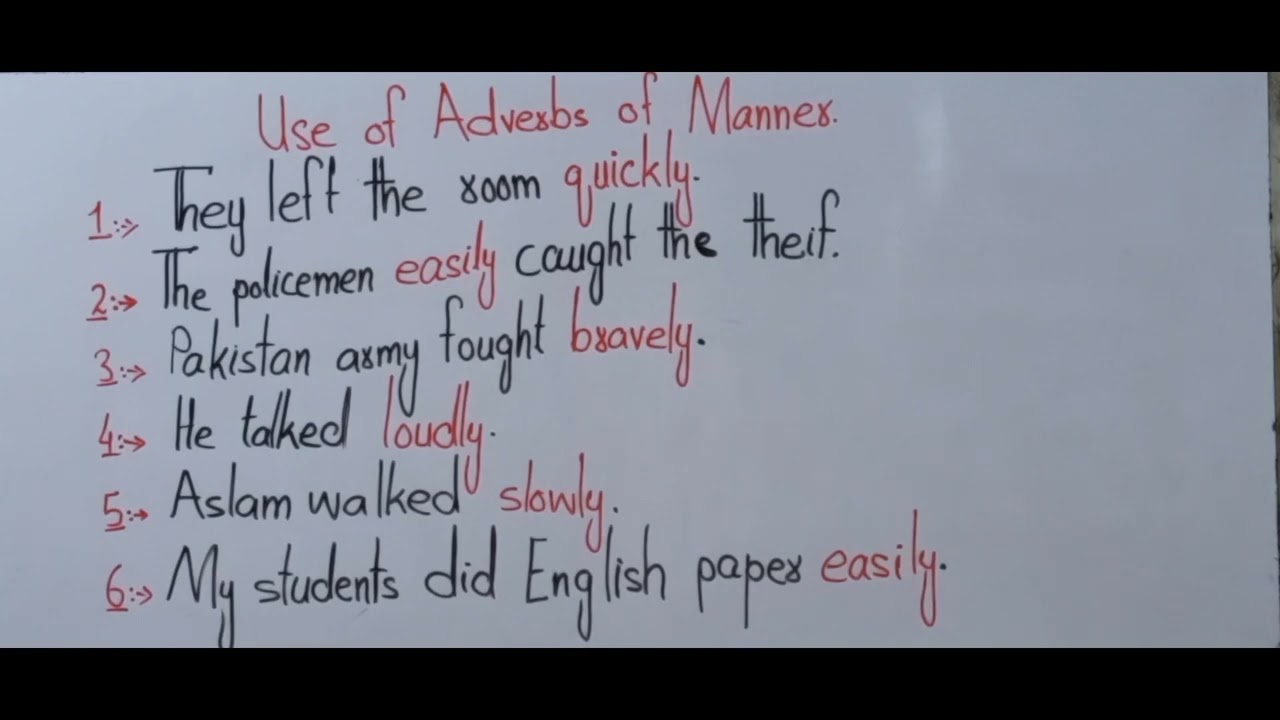 Use of Adverbs of Manner.
1:-> They left the room quickly.
2:-> The policemen easily caught the theif.
3:-> Pakistan army fought bravely.
4:-> He talked loudly.
5:-> Aslam walked slowly.
6:-> My students did English paper easily.